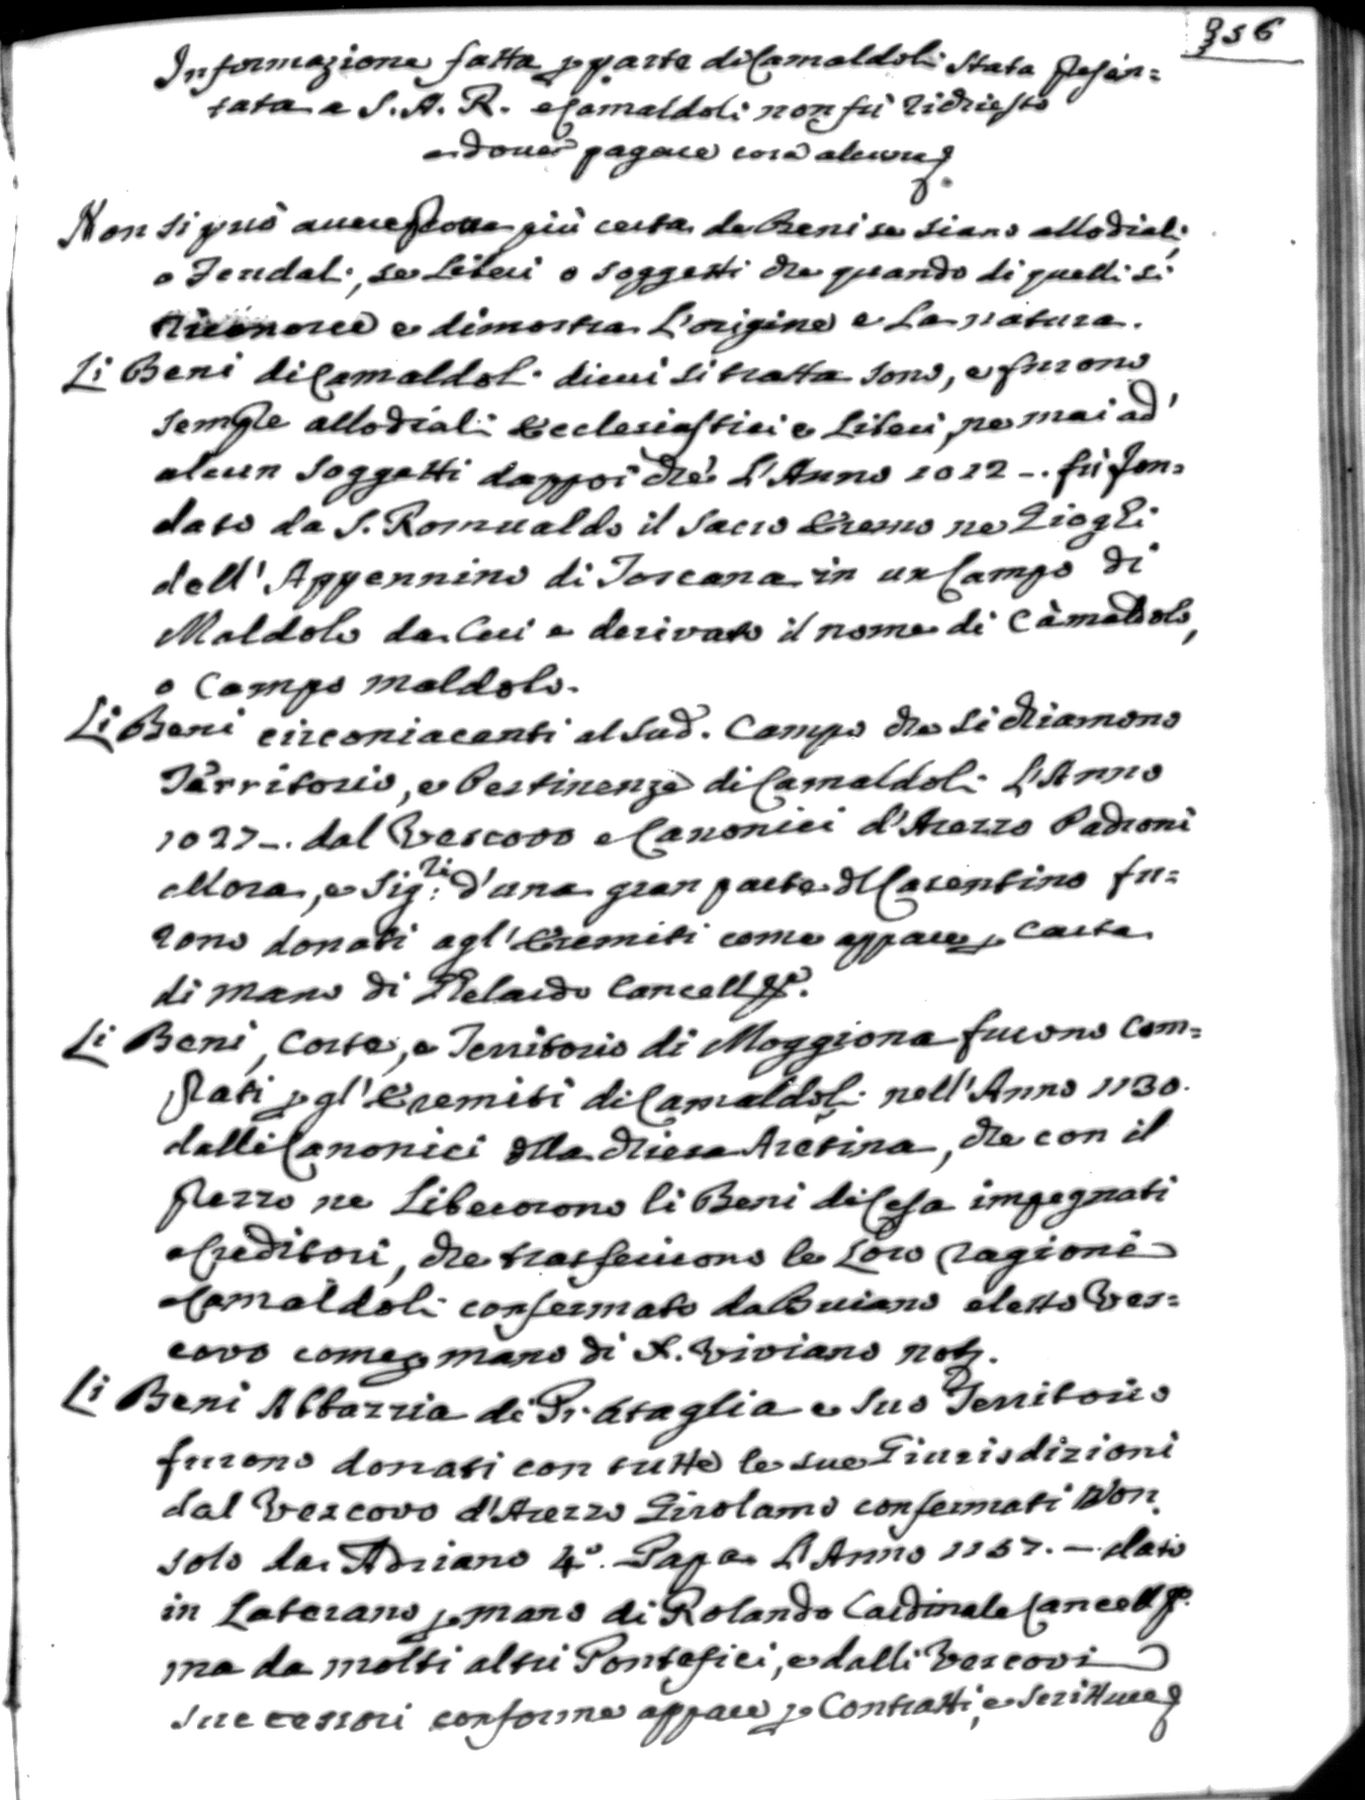 356
Informazione fatta p parte di Camaldoli stata presen=
tata a S. A. R. e Camaldoli non fù richiesto
a dover pagare cosa alcuna
Non si può avere prova più certa de Beni se siano allodiali,
o Feudali, se Liberi o soggetti che quando di quelli si
riconosce e dimostra L'origine e La natura.
Li Beni di Camaldoli di cui si tratta sono, e furono
sempre allodiali Ecclesiastici e Liberi, ne mai ad'
alcun soggetti dappoi che L'Anno 1012 -. fù fon=
dato da S. Romualdo il Sacro Eremo ne Gioghi
dell'Appennino di Toscana in un Campo di
Maldolo da Cui e derivato il nome di Càmaldolo,
o Campo maldolo.
Li Beni circoniacenti al sud. Campo che si chiamono
Territorio, e Pertinenze di Camaldoli L'Anno
1027 -. dal Vescovo e Canonici d'Arezzo Padroni
allora, e Sig.ri d'una gran parte dl Casentino fu=
rono donati agl'Eremiti come appare p Carta
di mano di Pielardo Cancell.re.
Li Beni, Corte, e Territorio di Moggiona furono Com=
prati p gl'Eremiti di Camaldoli nell'Anno 1130.
dalli Canonici dlla Chiesa Aretina, che con il
prezzo ne Liberorono li Beni di Cesa impegnati
a Creditori, che trasferirono le Loro ragioni
a Camaldoli confermato da Buiano eletto Ves=
covo come p mano di S. Viviano not.
Li Beni Abbazzia di Prataglia e suo Territorio
furono donati con tutte le sue Giurisdizioni
dal Vescovo d'Arezzo Girolamo confermati Non
solo da Adriano 4º. Papa L'Anno 1157. - dato
in Laterano p mano di Rolando Cardinale Cancell.re
ma da molti altri Pontefici, e dalli Vescovi
successori conforme appare p Contratti, e Scritture